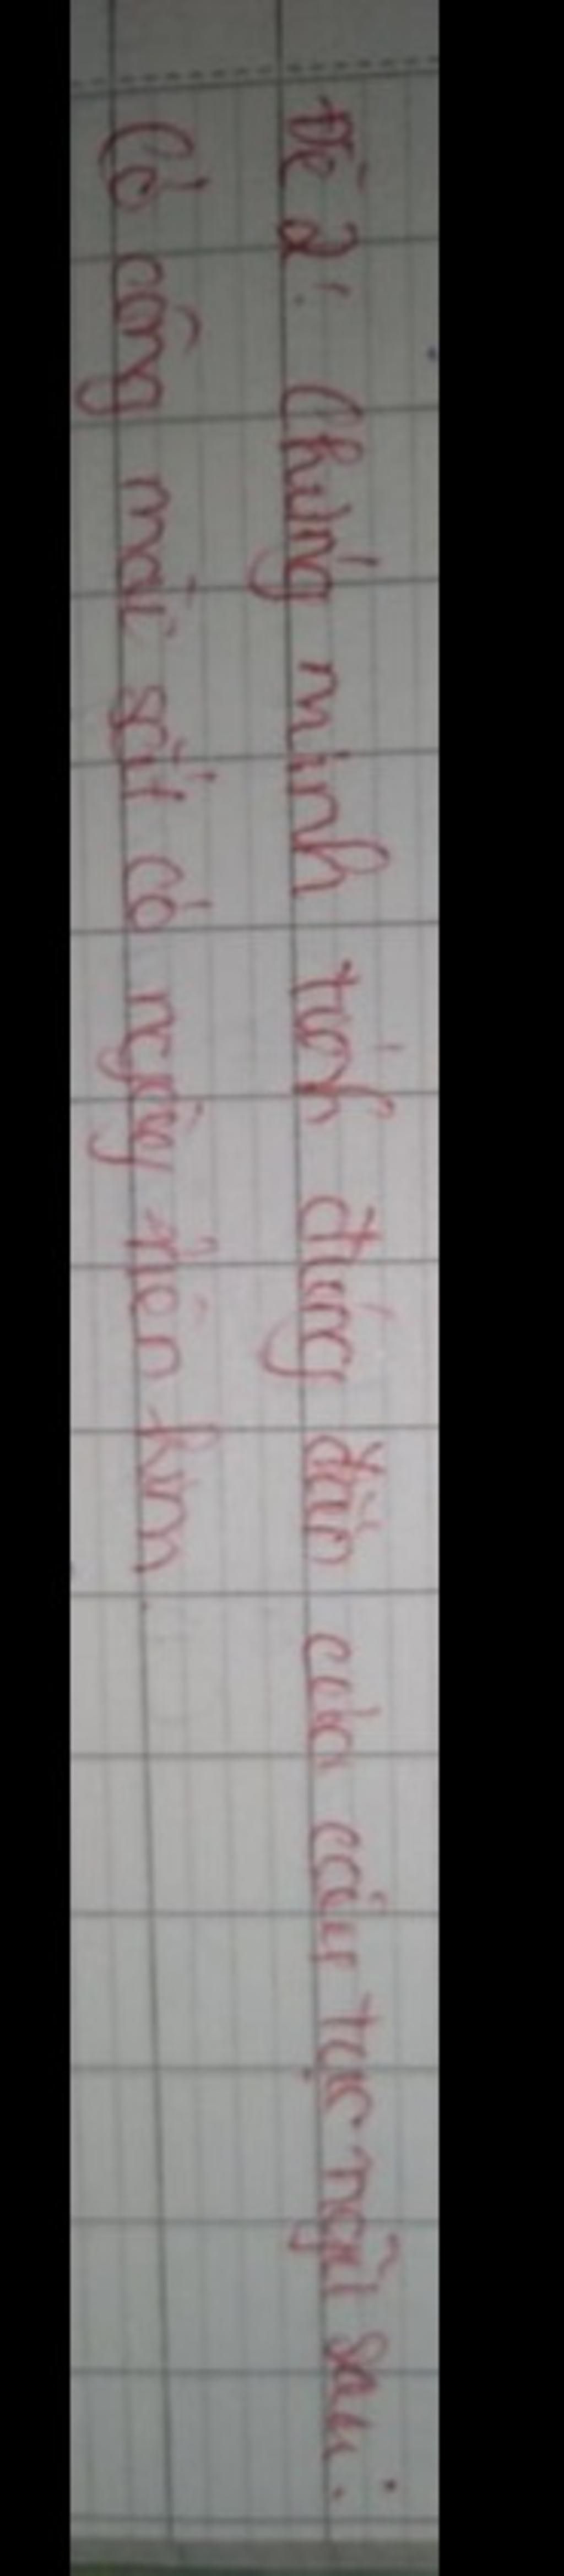 Đề 2: Chứng minh tính đúng đắn của câu tục ngữ sau:
Có công mài sắt có ngày nên kim.